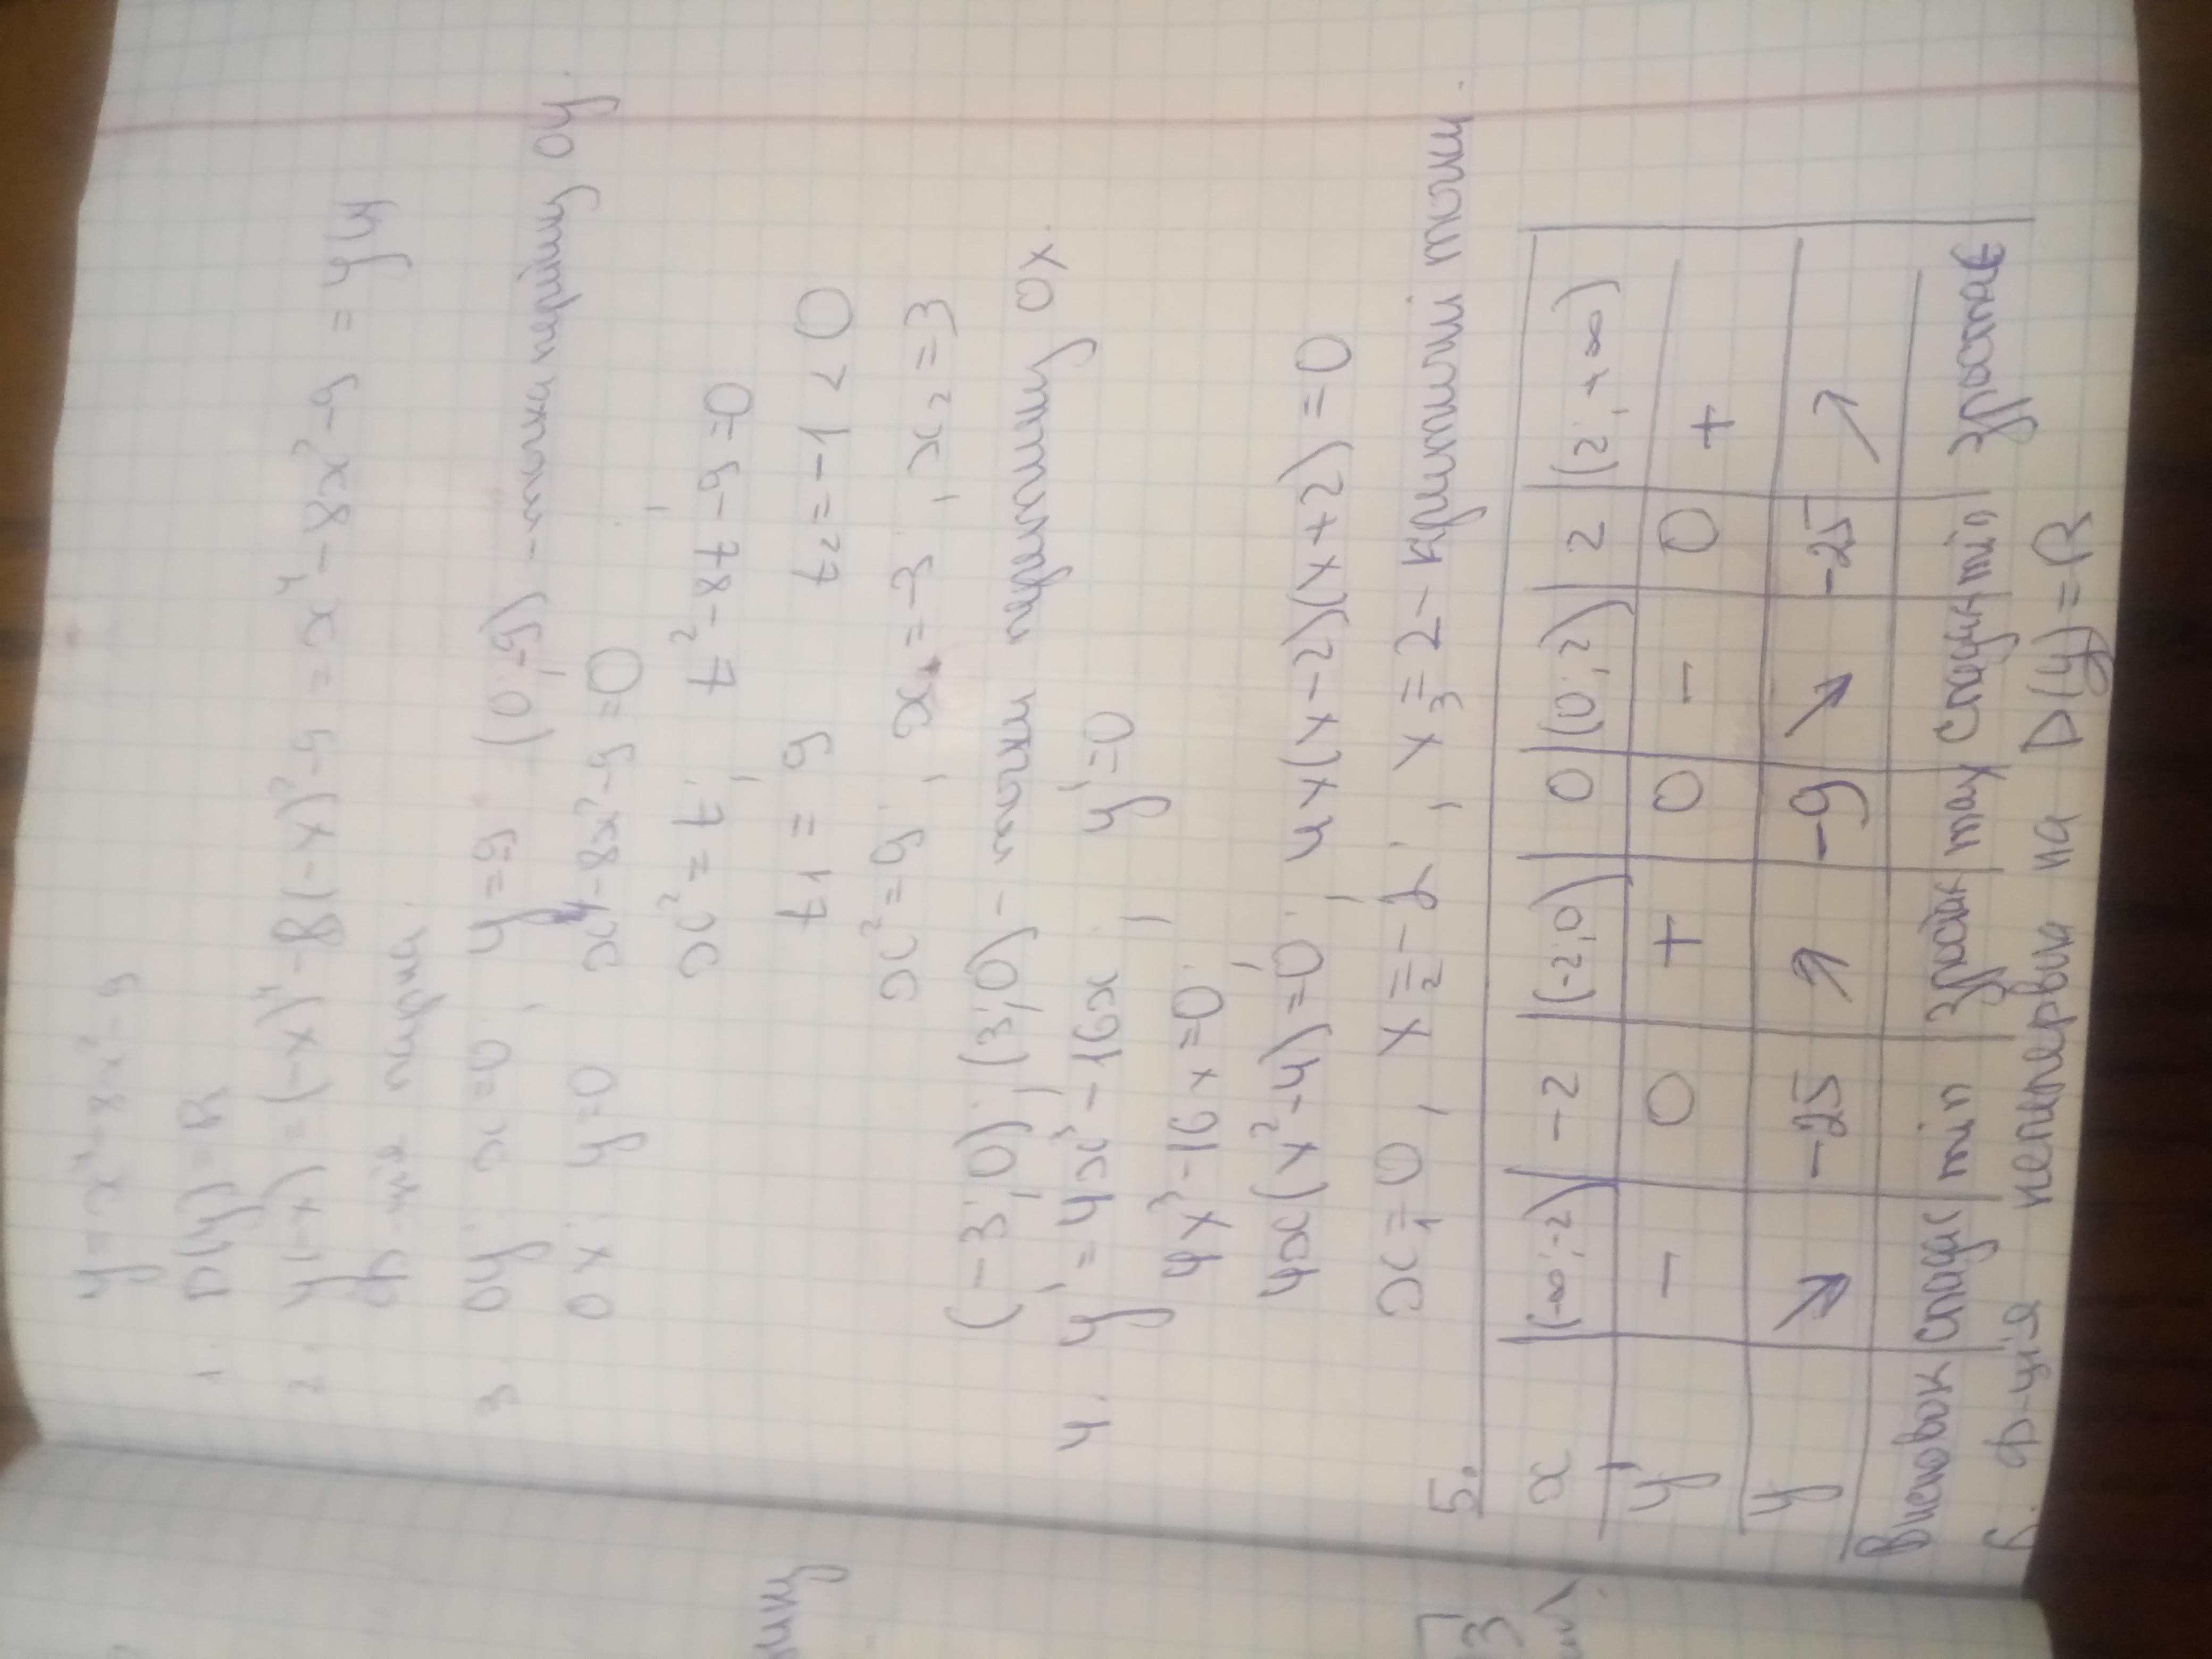 y = x⁴ - 8x² - 9
1. D(y) = R
2. y(-x) = (-x)⁴ - 8(-x)² - 9 = x⁴ - 8x² - 9 = y(x)
ф-ція парна.
3. Oy: x = 0, y = -9 (0; -9) - точка перетину Oy.
Ox: y = 0 x⁴ - 8x² - 9 = 0
x² = t, t² - 8t - 9 = 0,
t₁ = 9 t₂ = -1 < 0
x² = 9, x₁ = -3, x₂ = 3
(-3; 0), (3; 0) - точки перетину Ox.
4. y' = 4x³ - 16x, y' = 0
4x³ - 16x = 0,
4x(x² - 4) = 0, 4x(x - 2)(x + 2) = 0
x₁ = 0, x₂ = -2, x₃ = 2 - критичні точки.
5.
x (-∞; -2) -2 (-2; 0) 0 (0; 2) 2 (2; +∞)
y' - 0 + 0 - 0 +
y ↘ -25 ↗ -9 ↘ -25 ↗
Висновок спадає min max min зростає
6. ф-ція неперервна на D(y) = R